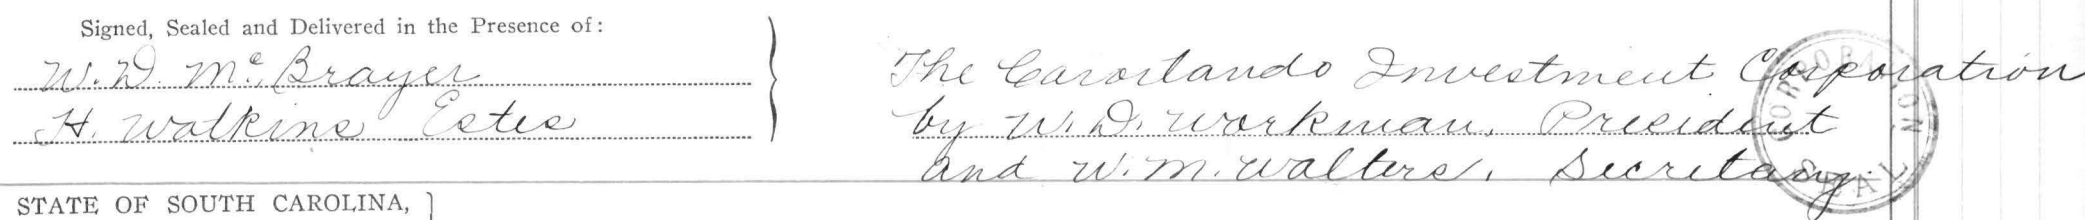 Signed, Sealed and Delivered in the Presence of:
W. D. McBrayer
H. Watkins Estes
The Carorlando Investment Corporation
by W. D. Workman, President
and W. M. Walters, Secretary.
CORPORATION SEAL
STATE OF SOUTH CAROLINA,